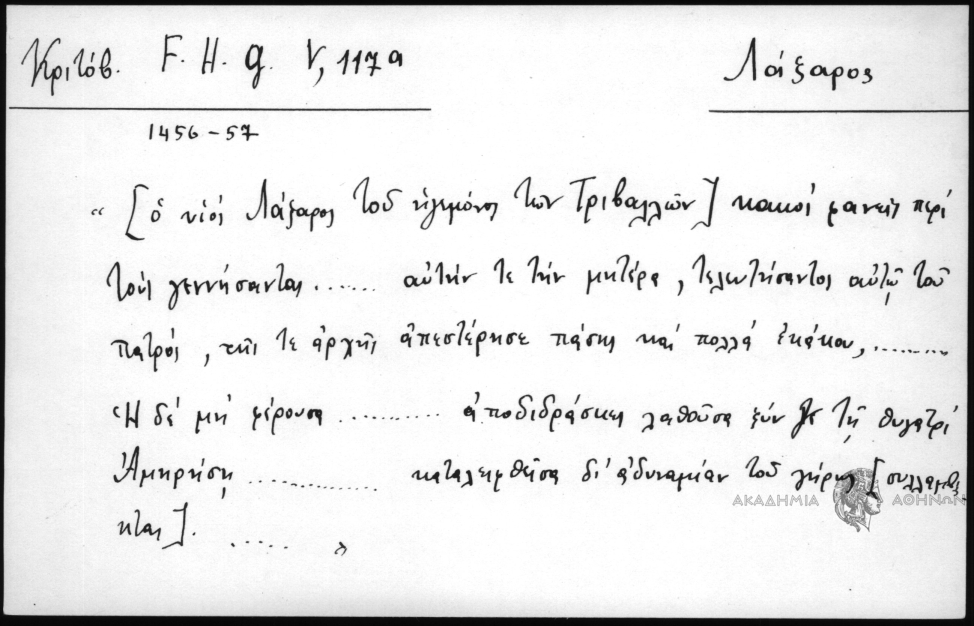 Κριτόβ. F. H. G. V, 117a
Λάζαρος
1456-57
“ [ὁ υἱός Λάζαρος τοῦ ἡγεμόνος των Τριβαλλῶν] κακός φανείς περί
τούς γεννήσαντας ...... αὐτήν τε τήν μητέρα, τελευτήσαντος αὐτῇ τοῦ
πατρός, τῆς τε ἀρχῆς ἀπεστέρησε πάσης καί πολλά ἐκάκου, .........
Ἡ δέ μή φέρουσα .......... ἀποδιδράσκει λαθοῦσα ξύν γε τῇ θυγατρί
Ἀμηρήσῃ .............. καταλειφθεῖσα δι’ ἀδυναμίαν τοῦ γήρως [συλλαμβά
νεται]. ..... ”
ΑΚΑΔΗΜΙΑ ΑΘΗΝΩΝ